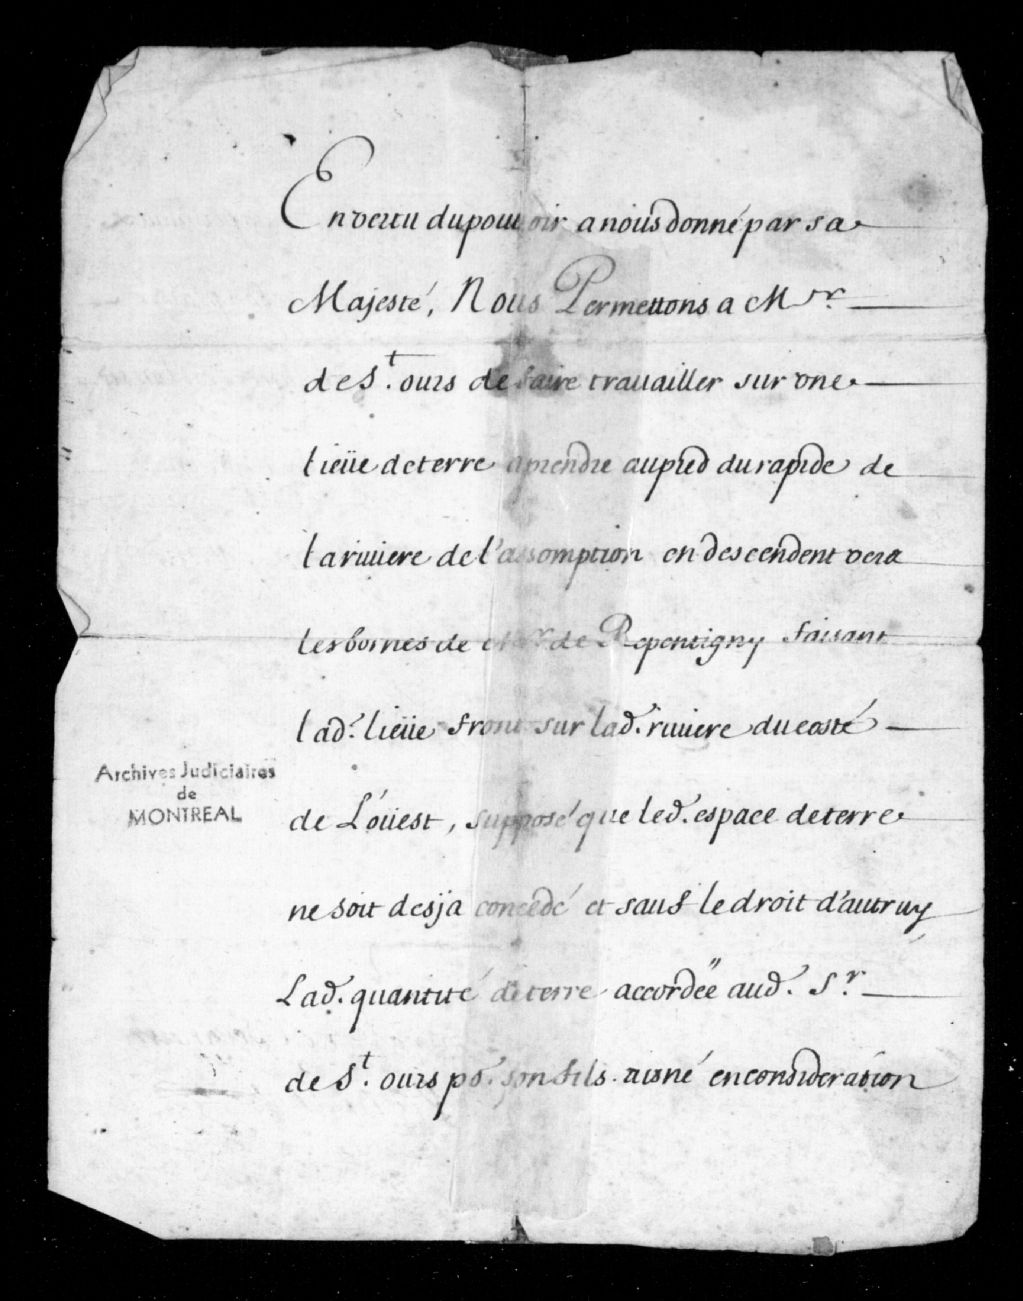 En vertu du pouuoir a nous donné par sa
Majesté, Nous Permettons a Mr
de St. ours de faire trauailler sur vne
lieüe de terre a prendre au pied du rapide de
la riuiere de l'assomption en descendent vers
les bornes de Mr. de Repentigny faisant
lad. lieüe front sur lad. riuiere du costé
Archives Judiciaires
de
MONTREAL
de L'oüest, supposé que led. espace de terre
ne soit desja concedé et sauf le droit d'autruy
Lad. quantité de terre accordëe aud. Sr.
de St. ours po. son fils aisné en consideration